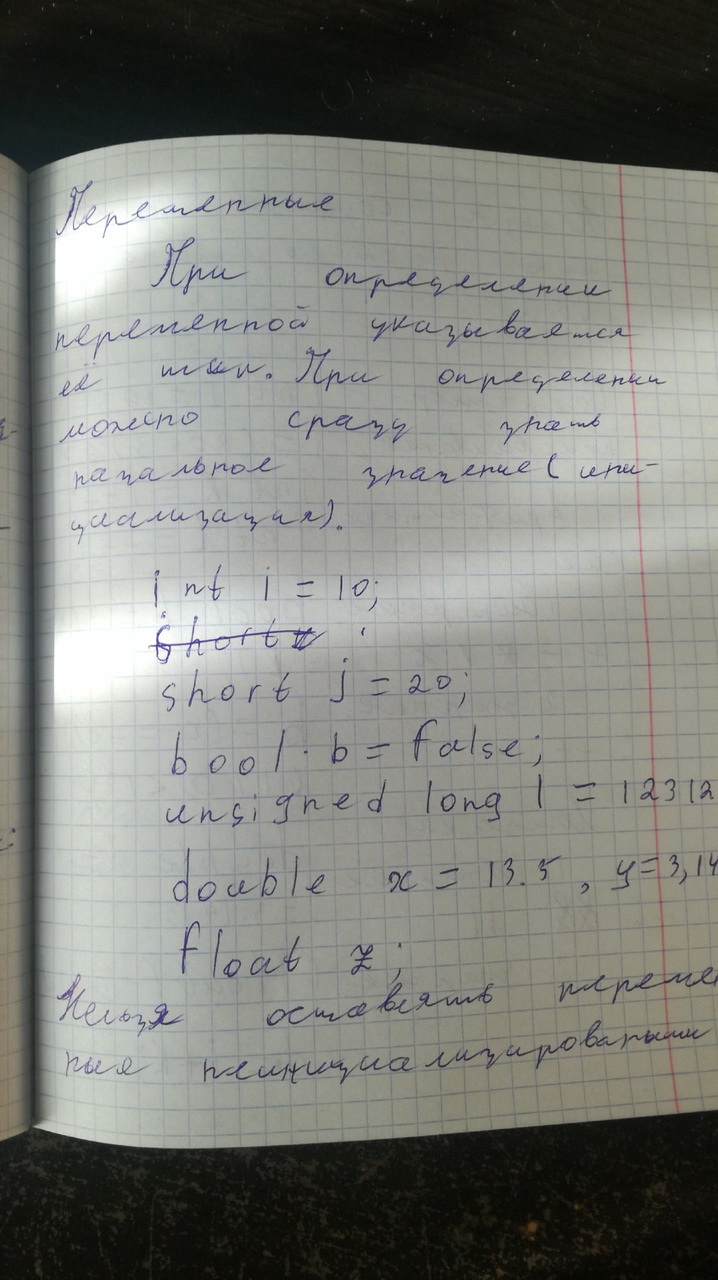 Переменные
При определении
переменной указывается
её тип. При определении
можно сразу знать
начальное значение (ини-
циализация).
int i = 10;
short
short j = 20;
bool b = false;
unsigned long l = 12312
double x = 13.5, y = 3,14
float z;
Нельзя оставлять переме
ные неинициализироваными